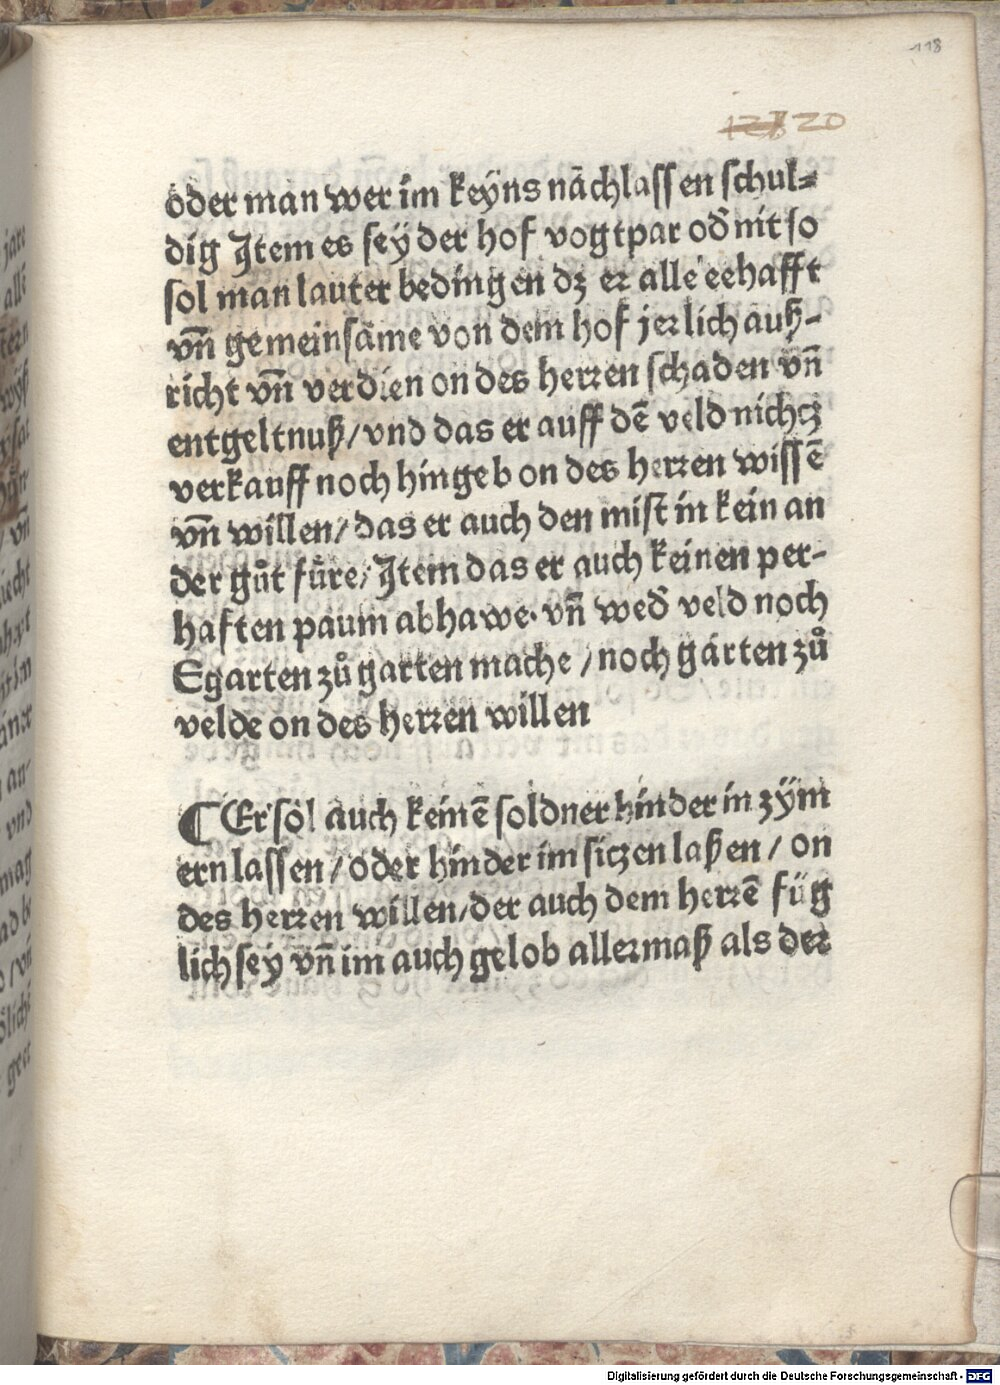 118
20
oder man wer im keÿns nachlassen schul⸗
dig Item es seÿ der hof vogtpar od̄ nit so
sol man lauter bedingen dz er alle eehafft
vn̄ gemeinsame von dem hof jerlich auß-
richt vn̄ verdien on des herren schaden vn̄
entgeltnuß/vnd das er auff dē veld nichcz
verkauff noch hingeb on des herren wissē
vn̄ willen/das er auch den mist in kein an
der gůt fůre/Item das er auch keinen per-
haften paum abhawe· vn̄ wed̄ veld noch
Egarten zů garten mache/noch garten zů
velde on des herren willen
¶ Er sol auch keinē soldner hinder in zÿm
ern lassen/oder hinder im siczen laßen/on
des herren willen/der auch dem herrē füg
lich sey vn̄ im auch gelob allermaß als der
Digitalisierung gefördert durch die Deutsche Forschungsgemeinschaft - DFG